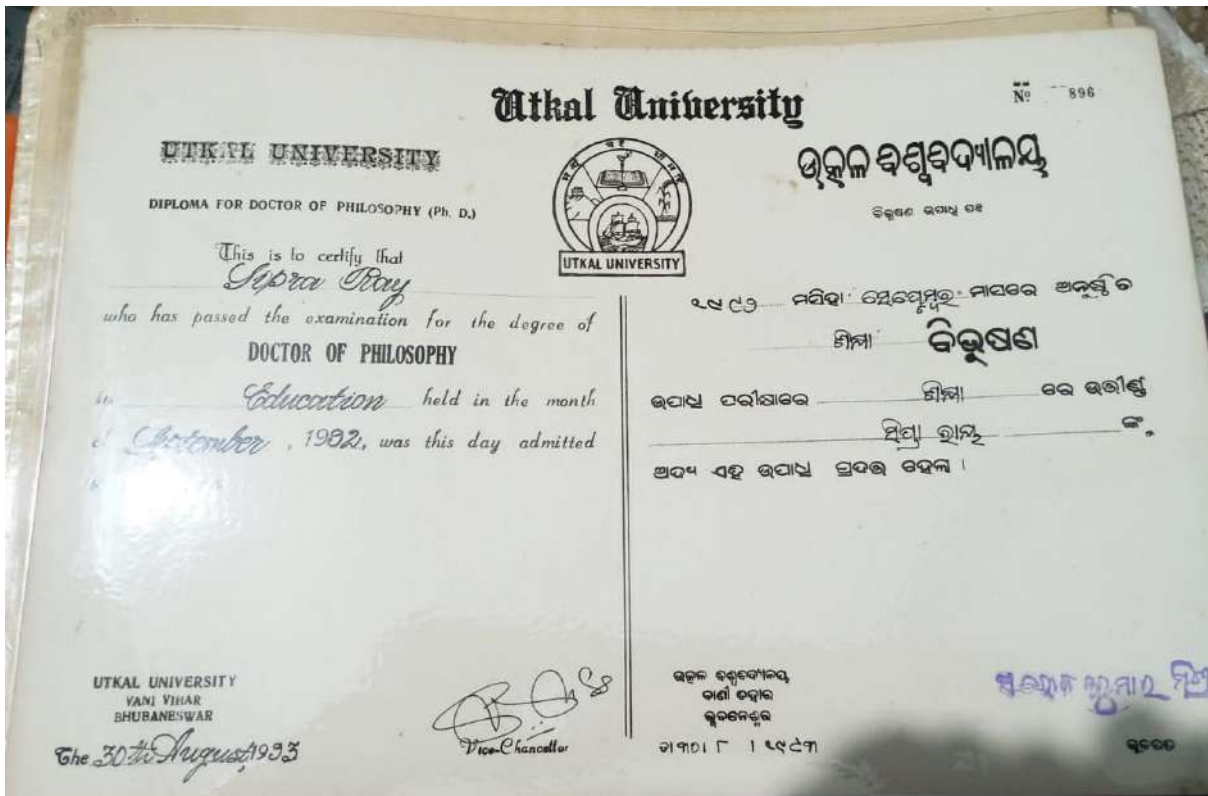 Utkal University
Nº 896
UTKAL UNIVERSITY
DIPLOMA FOR DOCTOR OF PHILOSOPHY (Ph. D.)
This is to certify that
Sipra Ray
who has passed the examination for the degree of
DOCTOR OF PHILOSOPHY
in Education held in the month
September, 1992, was this day admitted
UTKAL UNIVERSITY
VANI VIHAR
BHUBANESWAR
The 30th August, 1993
Vice-Chancellor
UTKAL UNIVERSITY
ଉତ୍କଳ ବିଶ୍ୱବିଦ୍ୟାଳୟ
ବିଭୂଷଣ ଉପାଧି ପତ୍ର
୧୯୯୨ ମସିହା ସେପ୍ଟେମ୍ବର ମାସରେ ଅନୁଷ୍ଠିତ
ଶିକ୍ଷା ବିଭୂଷଣ
ଉପାଧି ପରୀକ୍ଷାରେ ଶିକ୍ଷା ରେ ଉତ୍ତୀର୍ଣ୍ଣ
ସିପ୍ରା ରାୟ ଙ୍କୁ
ଅଦ୍ୟ ଏହି ଉପାଧି ପ୍ରଦତ୍ତ ହେଲା ।
ଉତ୍କଳ ବିଶ୍ୱବିଦ୍ୟାଳୟ
ବାଣୀ ବିହାର
ଭୁବନେଶ୍ୱର